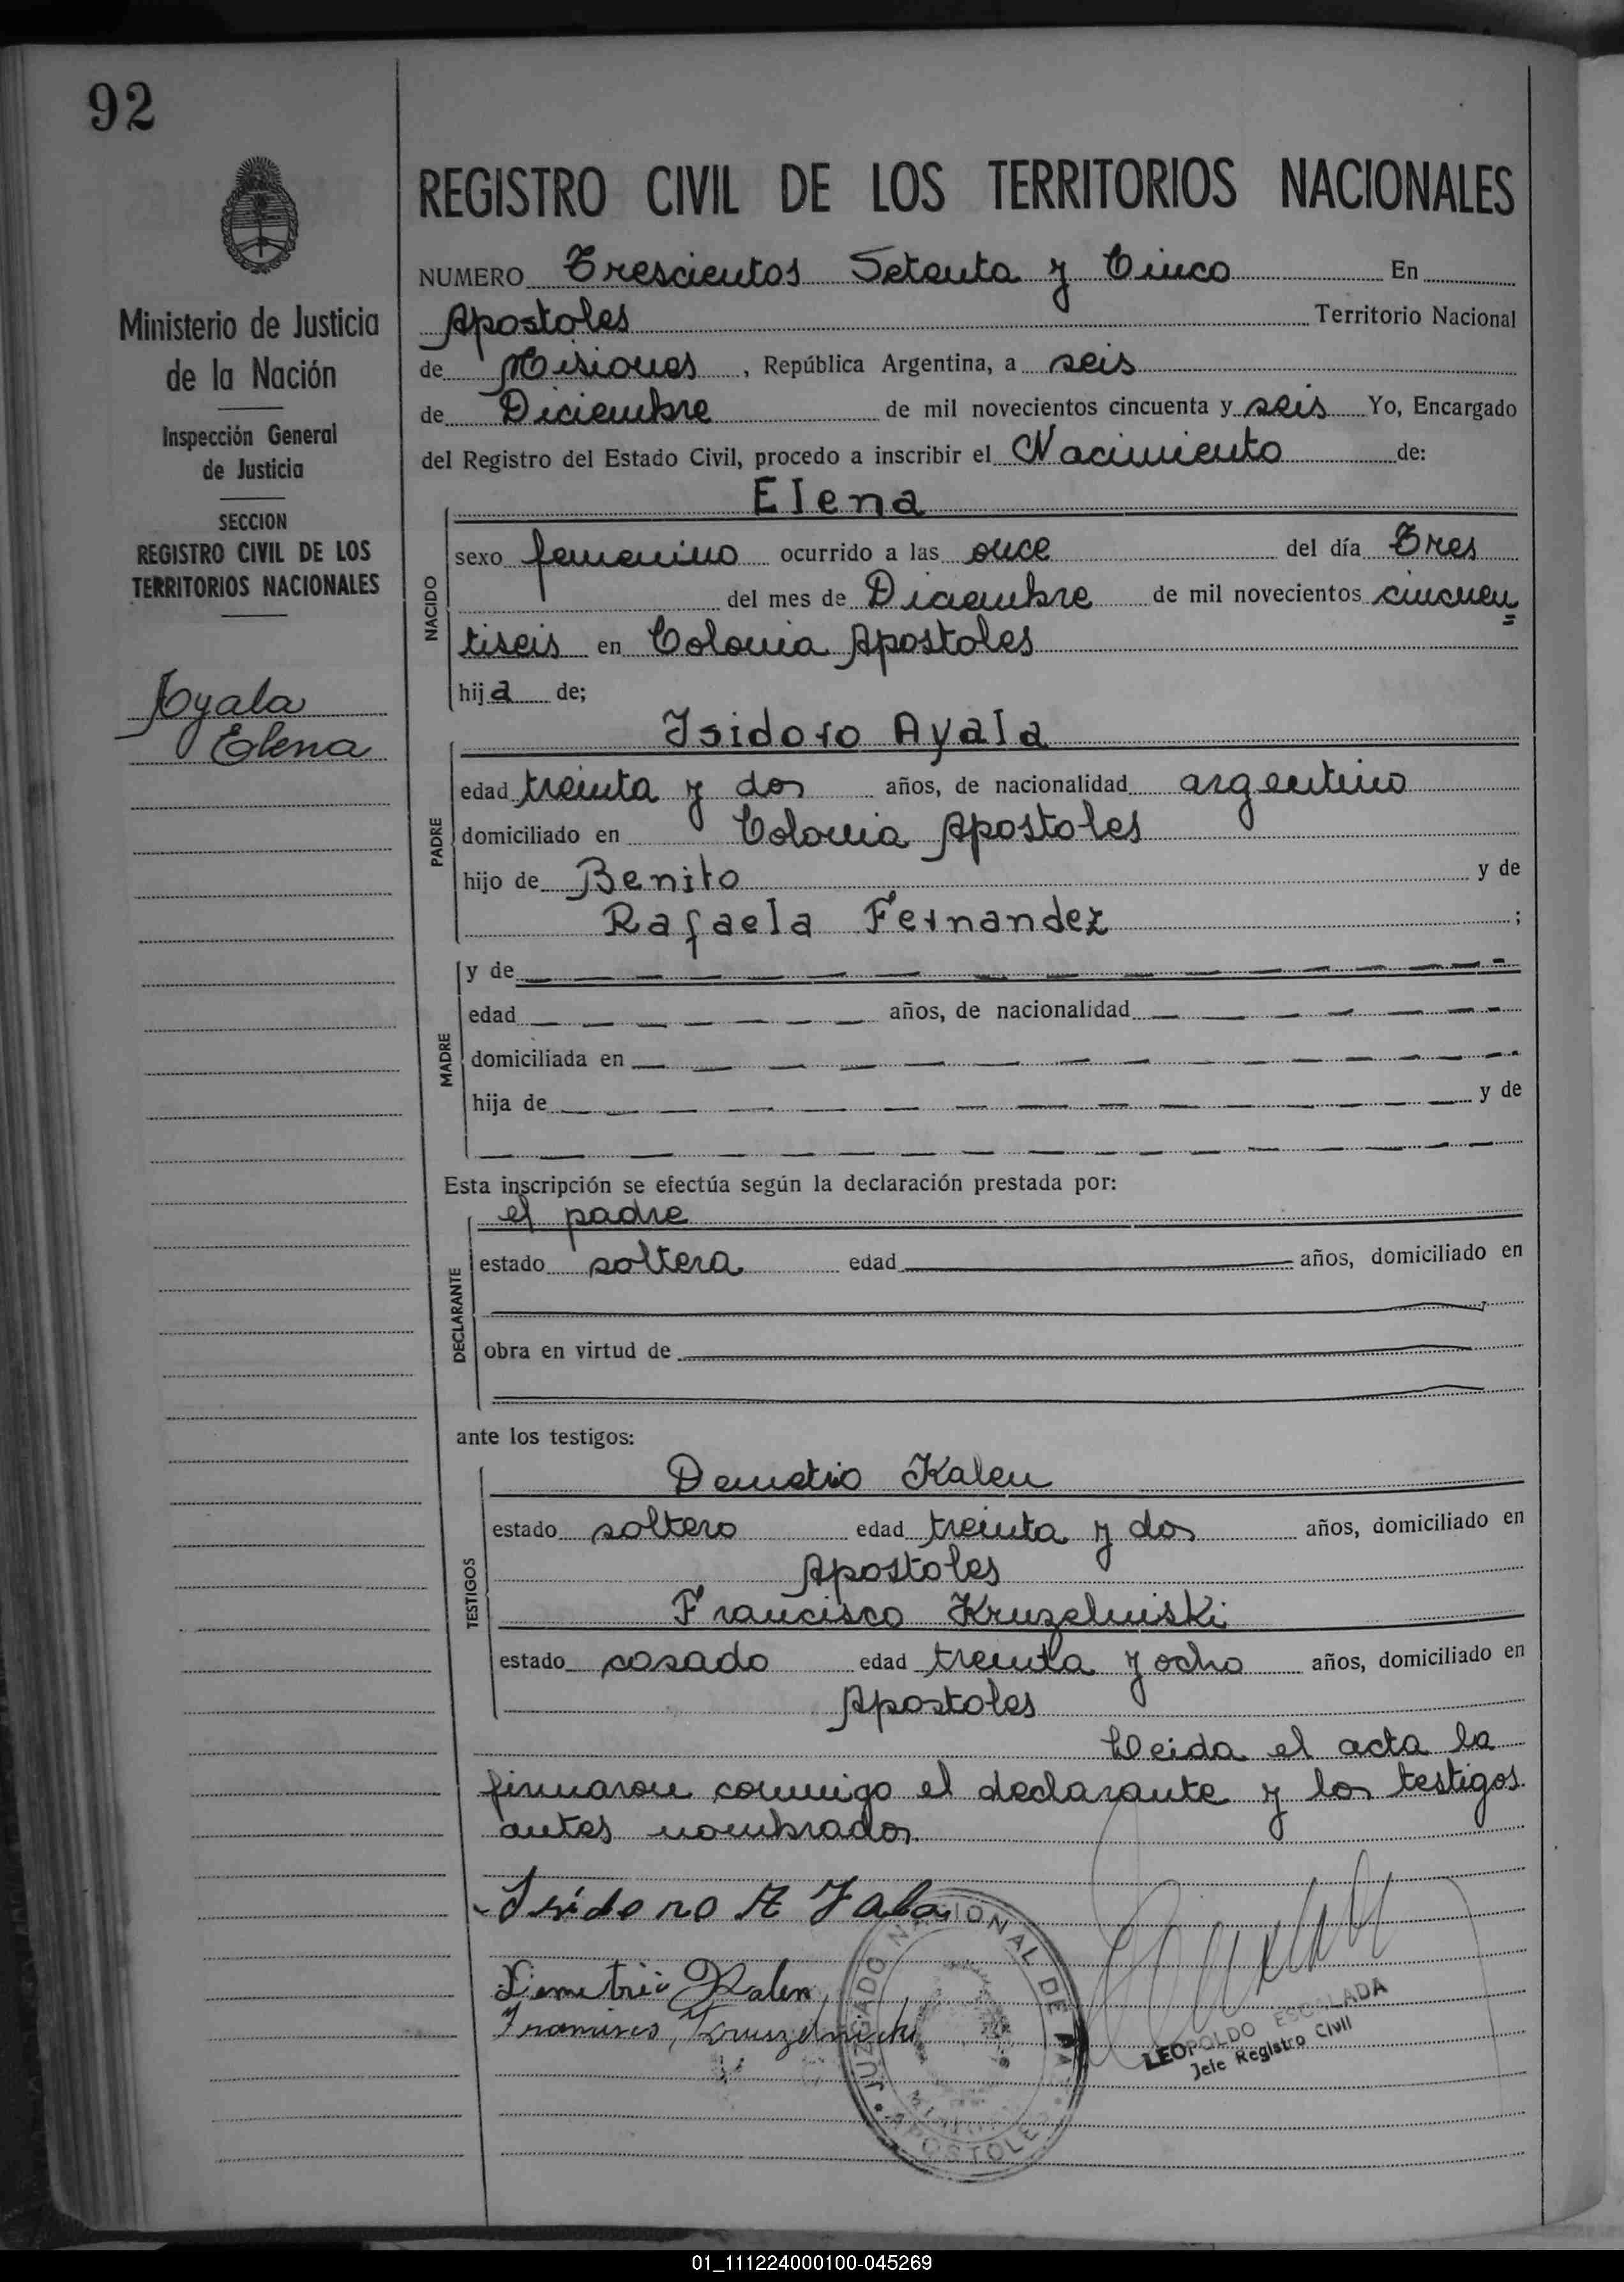 92
REGISTRO CIVIL DE LOS TERRITORIOS NACIONALES
NUMERO Trescientos Setenta y Cinco En
Apostoles Territorio Nacional
de Misiones, República Argentina, a seis
de Diciembre de mil novecientos cincuenta y seis Yo, Encargado
del Registro del Estado Civil, procedo a inscribir el Nacimiento de:
Ministerio de Justicia
de la Nación
Inspección General
de Justicia
SECCION
REGISTRO CIVIL DE LOS
TERRITORIOS NACIONALES
Ayala
Elena
NACIDO
Elena
sexo femenino ocurrido a las once del día Tres
del mes de Diciembre de mil novecientos cincuen=
tiseis en Colonia Apostoles
hija de;
PADRE
Isidoro Ayala
edad treinta y dos años, de nacionalidad argentino
domiciliado en Colonia Apostoles
hijo de Benito y de
Rafaela Fernandez;
MADRE
y de
edad años, de nacionalidad
domiciliada en
hija de y de
Esta inscripción se efectúa según la declaración prestada por:
DECLARANTE
el padre
estado soltera edad años, domiciliado en
obra en virtud de
ante los testigos:
TESTIGOS
Demetrio Kalen
estado soltero edad treinta y dos años, domiciliado en
Apostoles
Francisco Kruzelniski
estado casado edad treinta y ocho años, domiciliado en
Apostoles
Leida el acta la
firmaron conmigo el declarante y los testigos
antes nombrados.
Isidoro A Yala
Demetrio Kalen
Francisco Kruszelnicki
JUZGADO NACIONAL DE PAZ
APOSTOLES
LEOPOLDO ESCALADA
Jefe Registro Civil
01_111224000100-045269